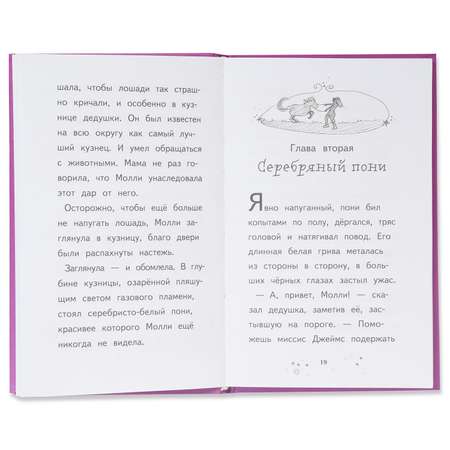 шала, чтобы лошади так страш-
но кричали, и особенно в куз-
нице дедушки. Он был известен
на всю округу как самый луч-
ший кузнец. И умел обращаться
с животными. Мама не раз го-
ворила, что Молли унаследовала
этот дар от него.
Осторожно, чтобы ещё больше
не напугать лошадь, Молли за-
глянула в кузницу, благо двери
были распахнуты настежь.
Заглянула — и обомлела. В глу-
бине кузницы, озарённой пляшу-
щим светом газового пламени,
стоял серебристо-белый пони,
красивее которого Молли ещё
никогда не видела.
Глава вторая
Серебряный пони
Явно напуганный, пони бил
копытами по полу, дёргался, тряс
головой и натягивал повод. Его
длинная белая грива металась
из стороны в сторону, в боль-
ших чёрных глазах застыл ужас.
— А, привет, Молли! — ска-
зал дедушка, заметив её, зас-
тывшую на пороге. — Помо-
жешь миссис Джеймс подержать
19